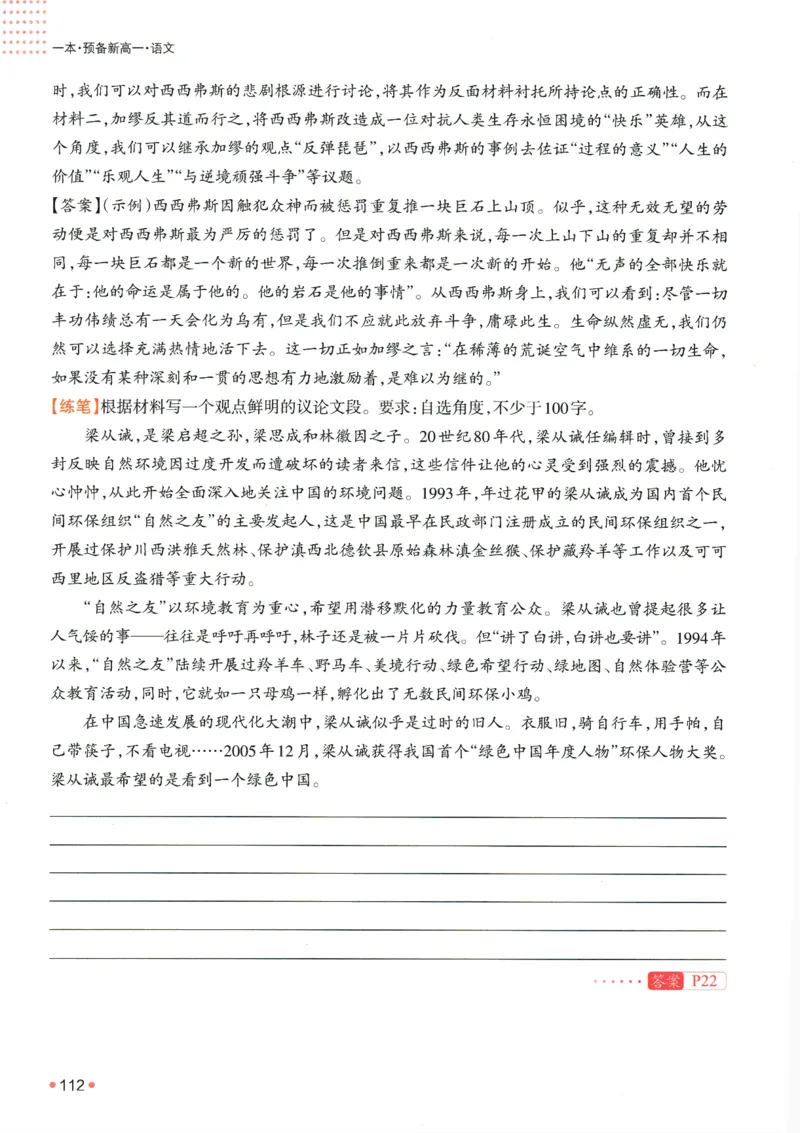 一本·预备新高一·语文
时,我们可以对西西弗斯的悲剧根源进行讨论,将其作为反面材料衬托所持论点的正确性。而在
材料二,加缪反其道而行之,将西西弗斯改造成一位对抗人类生存永恒困境的“快乐”英雄,从这
个角度,我们可以继承加缪的观点“反弹琵琶”,以西西弗斯的事例去佐证“过程的意义”“人生的
价值”“乐观人生”“与逆境顽强斗争”等议题。
【答案】(示例)西西弗斯因触犯众神而被惩罚重复推一块巨石上山顶。似乎,这种无效无望的劳
动便是对西西弗斯最为严厉的惩罚了。但是对西西弗斯来说,每一次上山下山的重复却并不相
同,每一块巨石都是一个新的世界,每一次推倒重来都是一次新的开始。他“无声的全部快乐就
在于:他的命运是属于他的。他的岩石是他的事情”。从西西弗斯身上,我们可以看到:尽管一切
丰功伟绩总有一天会化为乌有,但是我们不应就此放弃斗争,庸碌此生。生命纵然虚无,我们仍
然可以选择充满热情地活下去。这一切正如加缪之言:“在稀薄的荒诞空气中维系的一切生命,
如果没有某种深刻和一贯的思想有力地激励着,是难以为继的。”
【练笔】根据材料写一个观点鲜明的议论文段。要求:自选角度,不少于100字。
梁从诫,是梁启超之孙,梁思成和林徽因之子。20世纪80年代,梁从诫任编辑时,曾接到多
封反映自然环境因过度开发而遭破坏的读者来信,这些信件让他的心灵受到强烈的震撼。他忧
心忡忡,从此开始全面深入地关注中国的环境问题。1993年,年过花甲的梁从诫成为国内首个民
间环保组织“自然之友”的主要发起人,这是中国最早在民政部门注册成立的民间环保组织之一,
开展过保护川西洪雅天然林、保护滇西北德钦县原始森林滇金丝猴、保护藏羚羊等工作以及可可
西里地区反盗猎等重大行动。
“自然之友”以环境教育为重心,希望用潜移默化的力量教育公众。梁从诫也曾提起很多让
人气馁的事——往往是呼吁再呼吁,林子还是被一片片砍伐。但“讲了白讲,白讲也要讲”。1994年
以来,“自然之友”陆续开展过羚羊车、野马车、美境行动、绿色希望行动、绿地图、自然体验营等公
众教育活动,同时,它就如一只母鸡一样,孵化出了无数民间环保小鸡。
在中国急速发展的现代化大潮中,梁从诫似乎是过时的旧人。衣服旧,骑自行车,用手帕,自
己带筷子,不看电视……2005年12月,梁从诫获得我国首个“绿色中国年度人物”环保人物大奖。
梁从诫最希望的是看到一个绿色中国。
答案 P22
112